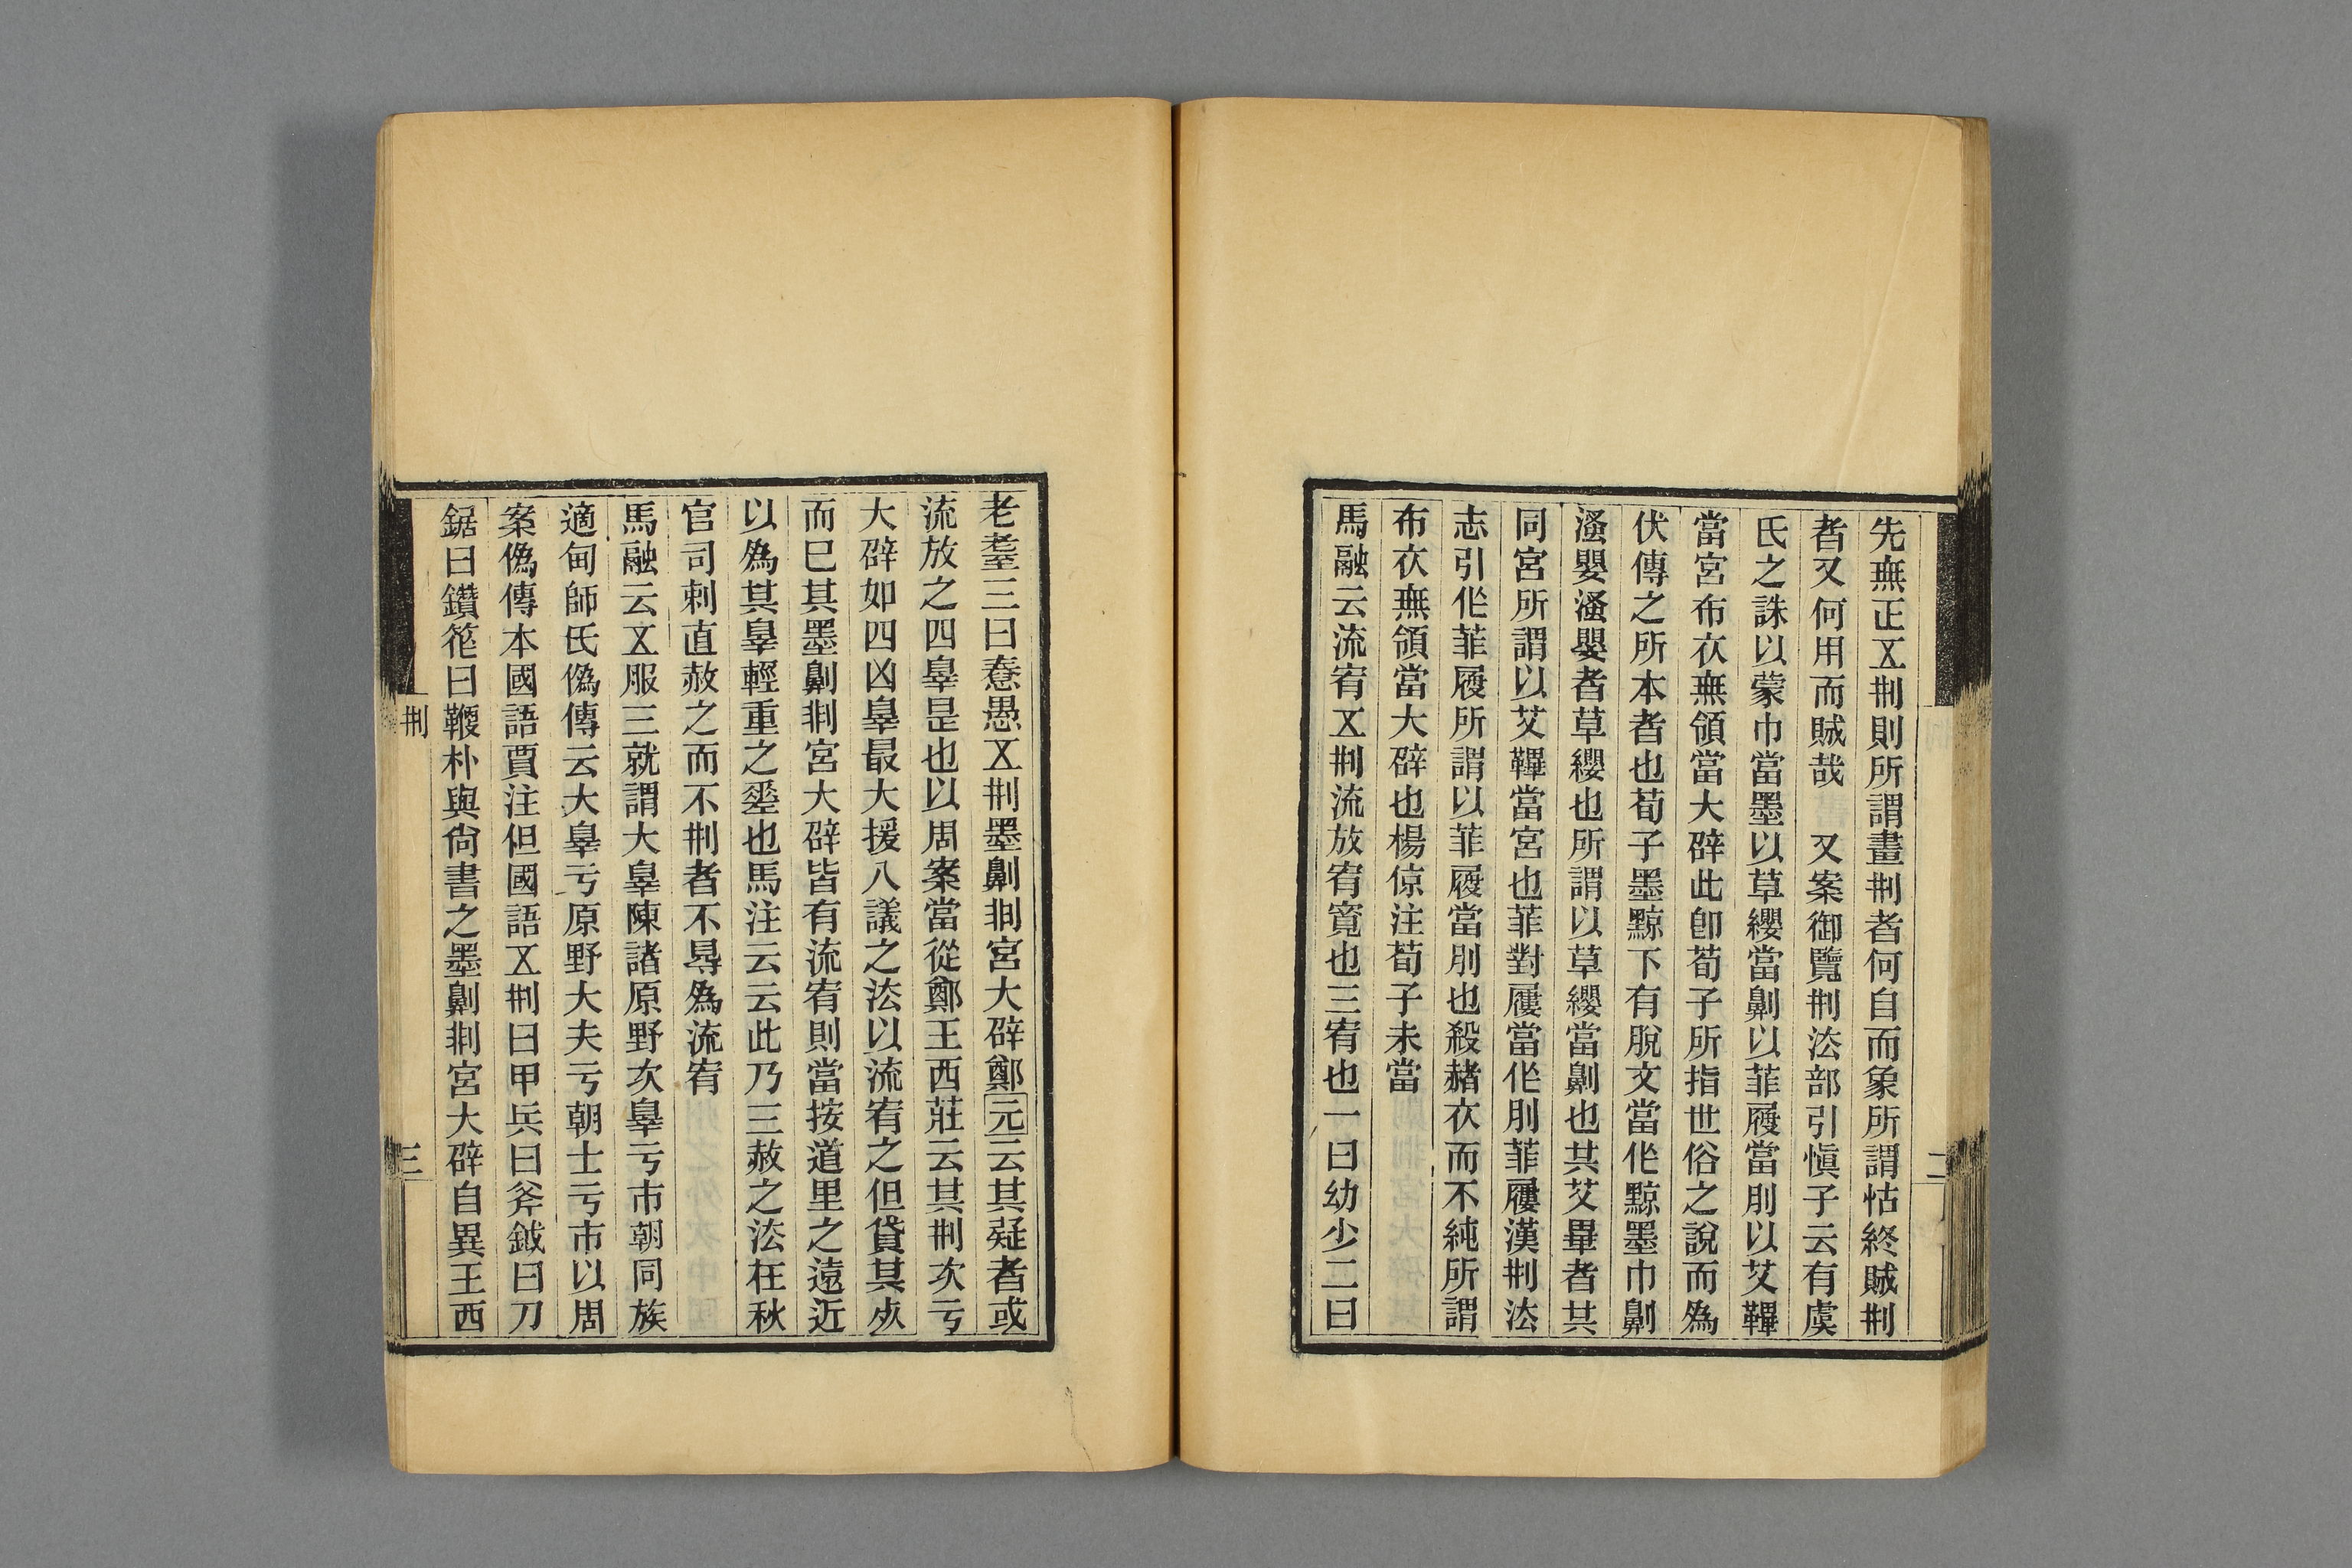 先無正㐅㓝則所謂畫㓝者何自而象所謂怙終賊㓝
者又何用而賊哉 又案御覽㓝法部引愼子云有虞
氏之誅以蒙巾當墨以草纓當劓以菲履當刖以艾韠
當宮布衣無領當大辟此卽荀子所指世俗之說而爲
伏傳之所本者也荀子墨黥下有脫文當作黥墨巾劓
慅嬰慅嬰者草纓也所謂以草纓當劓也其艾畢者其
同宮所謂以艾韠當宮也菲對屨當作刖菲屨漢㓝法
志引作菲履所謂以菲履當刖也殺赭衣而不純所謂
布衣無領當大辟也楊倞注荀子未當
馬融云流宥㐅㓝流放宥寬也三宥也一曰幼少二曰
二
老耄三曰憃愚㐅㓝墨劓剕宮大辟鄭元云其疑者或
流放之四辠是也以周案當從鄭王西莊云其㓝次亏
大辟如四凶辠最大援八議之法以流宥之但貸其死
而巳其墨劓剕宮大辟皆有流宥則當按道里之遠近
以爲其辠輕重之㘸也馬注云云此乃三赦之法在秋
官司刺直赦之而不㓝者不得爲流宥
馬融云㐅服三就謂大辠陳諸原野次辠亏市朝同族
適甸師氏僞傳云大辠亏原野大夫亏朝士亏市以周
案僞傳本國語賈注但國語㐅㓝曰甲兵曰斧鉞曰刀
鋸曰鑽笮曰鞭朴與尙書之墨劓剕宮大辟自異王西
㓝
三